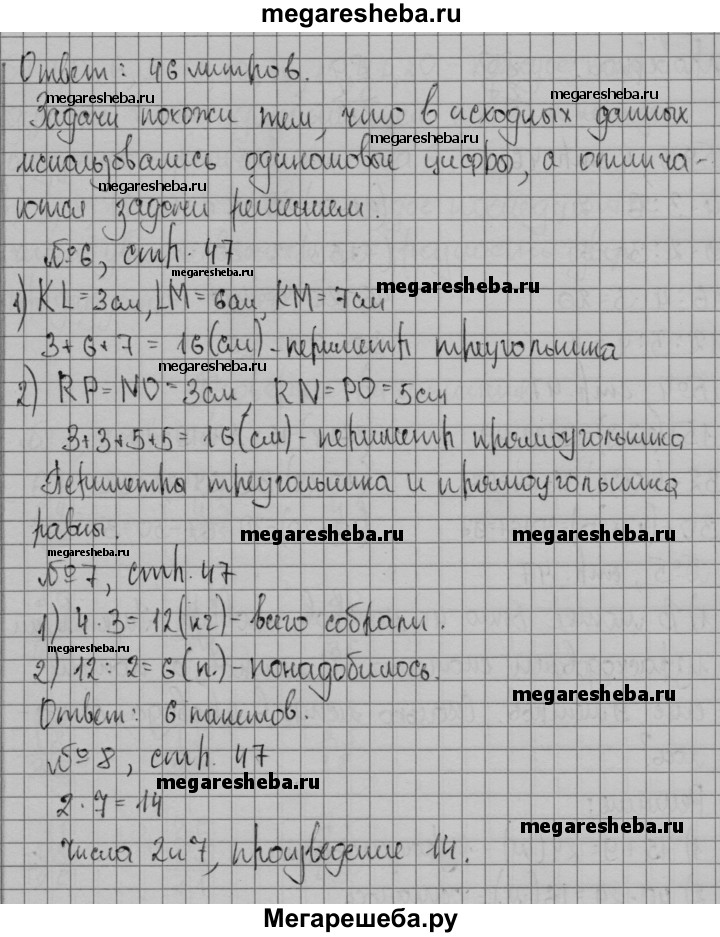 megaresheba.ru
Ответ: 46 литров.
megaresheba.ru
Задачи похожи тем, что в исходных данных
megaresheba.ru
использовались одинаковые цифры, а отлича-
megaresheba.ru
ются задачи решением.
№6, стр. 47
megaresheba.ru
megaresheba.ru
1) KL=3см, LM=6см, KM=7см
3+6+7=16(см)-периметр треугольника
megaresheba.ru
2) RP=NO=3см, RN=PO=5см
3+3+5+5=16(см)-периметр прямоугольника
Периметры треугольника и прямоугольника
равны.
megaresheba.ru megaresheba.ru
megaresheba.ru
№7, стр. 47
1) 4·3=12(кг)-всего собрали.
megaresheba.ru
2) 12:2=6(п.)-понадобилось.
megaresheba.ru
Ответ: 6 пакетов.
№8, стр. 47
megaresheba.ru
2·7=14
megaresheba.ru
Числа 2и7, произведение 14.
Мегарешеба.ру